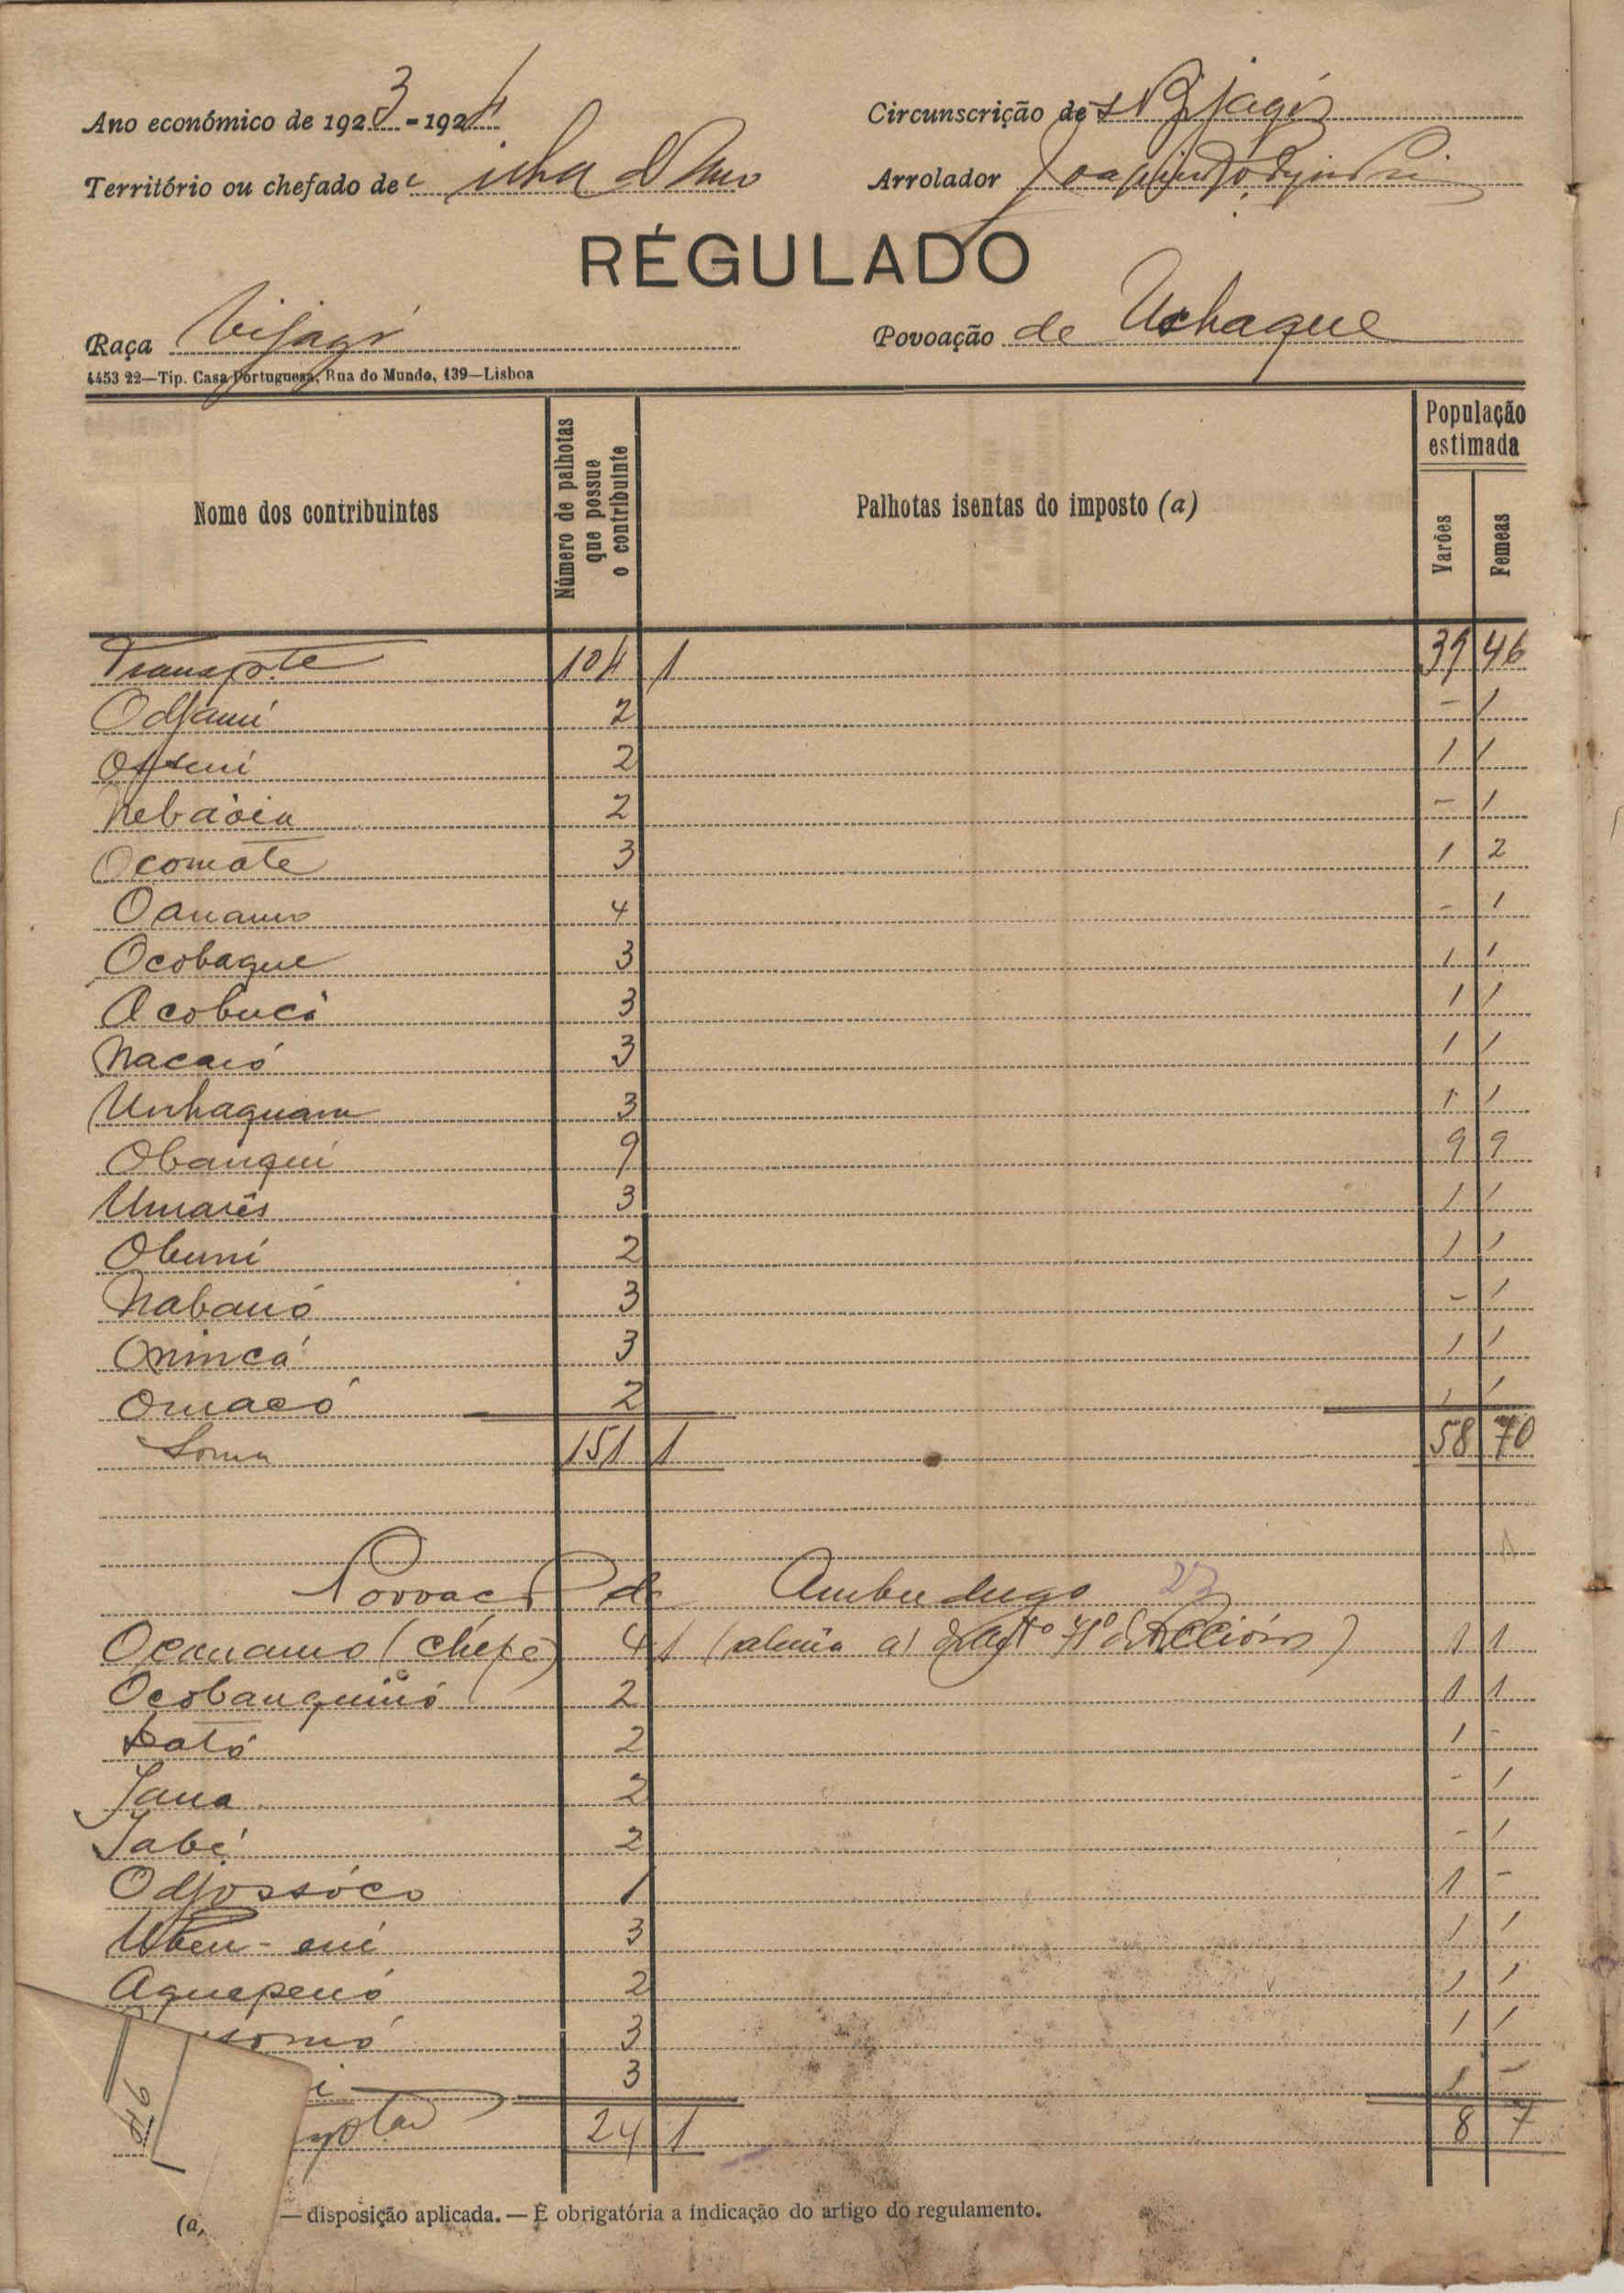 Ano económico de 1923-1924
Circunscrição de Bijagós
Território ou chefado de ilha d'Uno
Arrolador Joaquim
RÉGULADO
Raça bijagó
Povoação de Uchaque
4453 22—Tip. Casa Portuguesa, Rua do Mundo, 139—Lisboa
Nome dos contribuintes
Número de palhotas que possue o contribuinte
Palhotas isentas do imposto (a)
População estimada
Varões
Femeas
Transpte 104 1 39 46
Odjami 2 - 1
2 1 1
2 - 1
Ocomote 3 1 2
Oanamo 4 - 1
Ocobaque 3 1 1
Acobucó 3 1 1
Nacaió 3 1 1
Unhaquam 3 1 1
Obanqui 9 9 9
Umarés 3 1 1
Obuni 2 1 1
Nabanó 3 - 1
Onincá 3 1 1
Omacó 2 1 1
Soma 151 1 58 70
Povoação de Ambudugo 23
(chefe) 4 1 1 1
Ocobanquinó 2 1 1
Bató 2 1 -
Jana 2 - 1
Jabé 2 - 1
Odjossóco 1 1 -
3 1 1
Aquepenó 2 1 1
3 1 1
3 1 -
24 1 8 7
(a)
— disposição aplicada. — É obrigatória a indicação do artigo do regulamento.